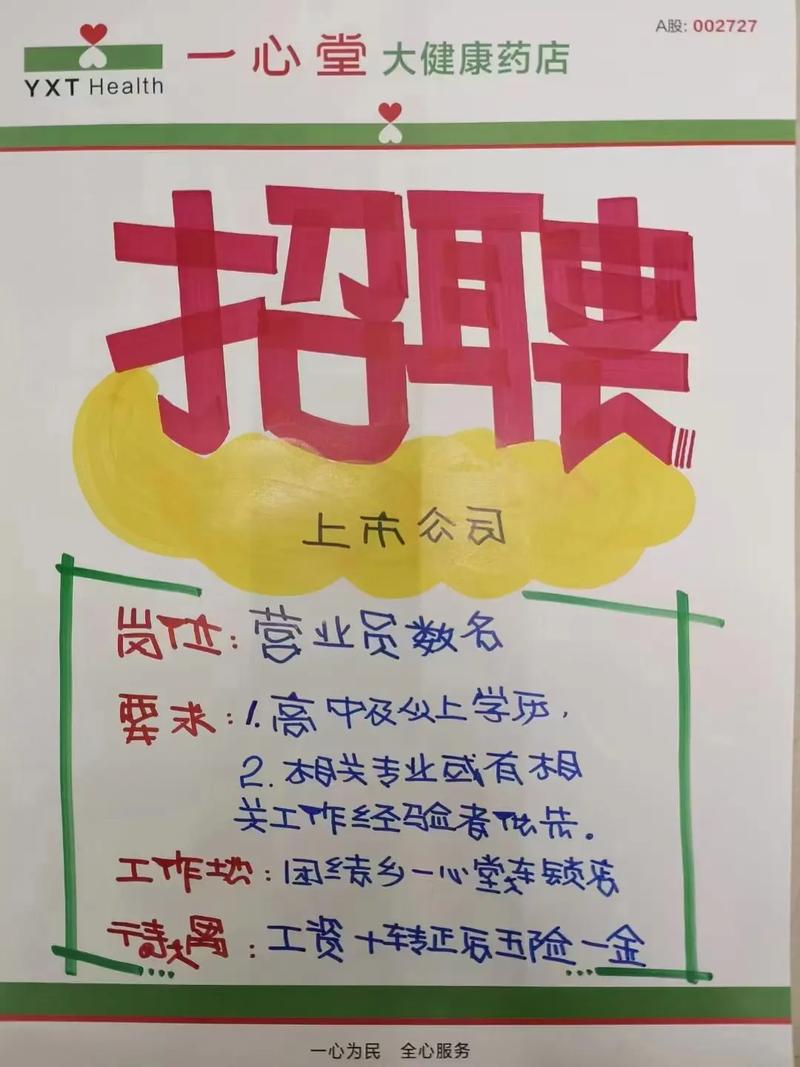 A股: 002727
YXT Health
一心堂大健康药店
招聘
上市公司
岗位：营业员数名
要求：1.高中及以上学历，
2.相关专业或有相
关工作经验者优先。
工作地：团结乡一心堂连锁店
待遇：工资+转正后五险一金
一心为民 全心服务